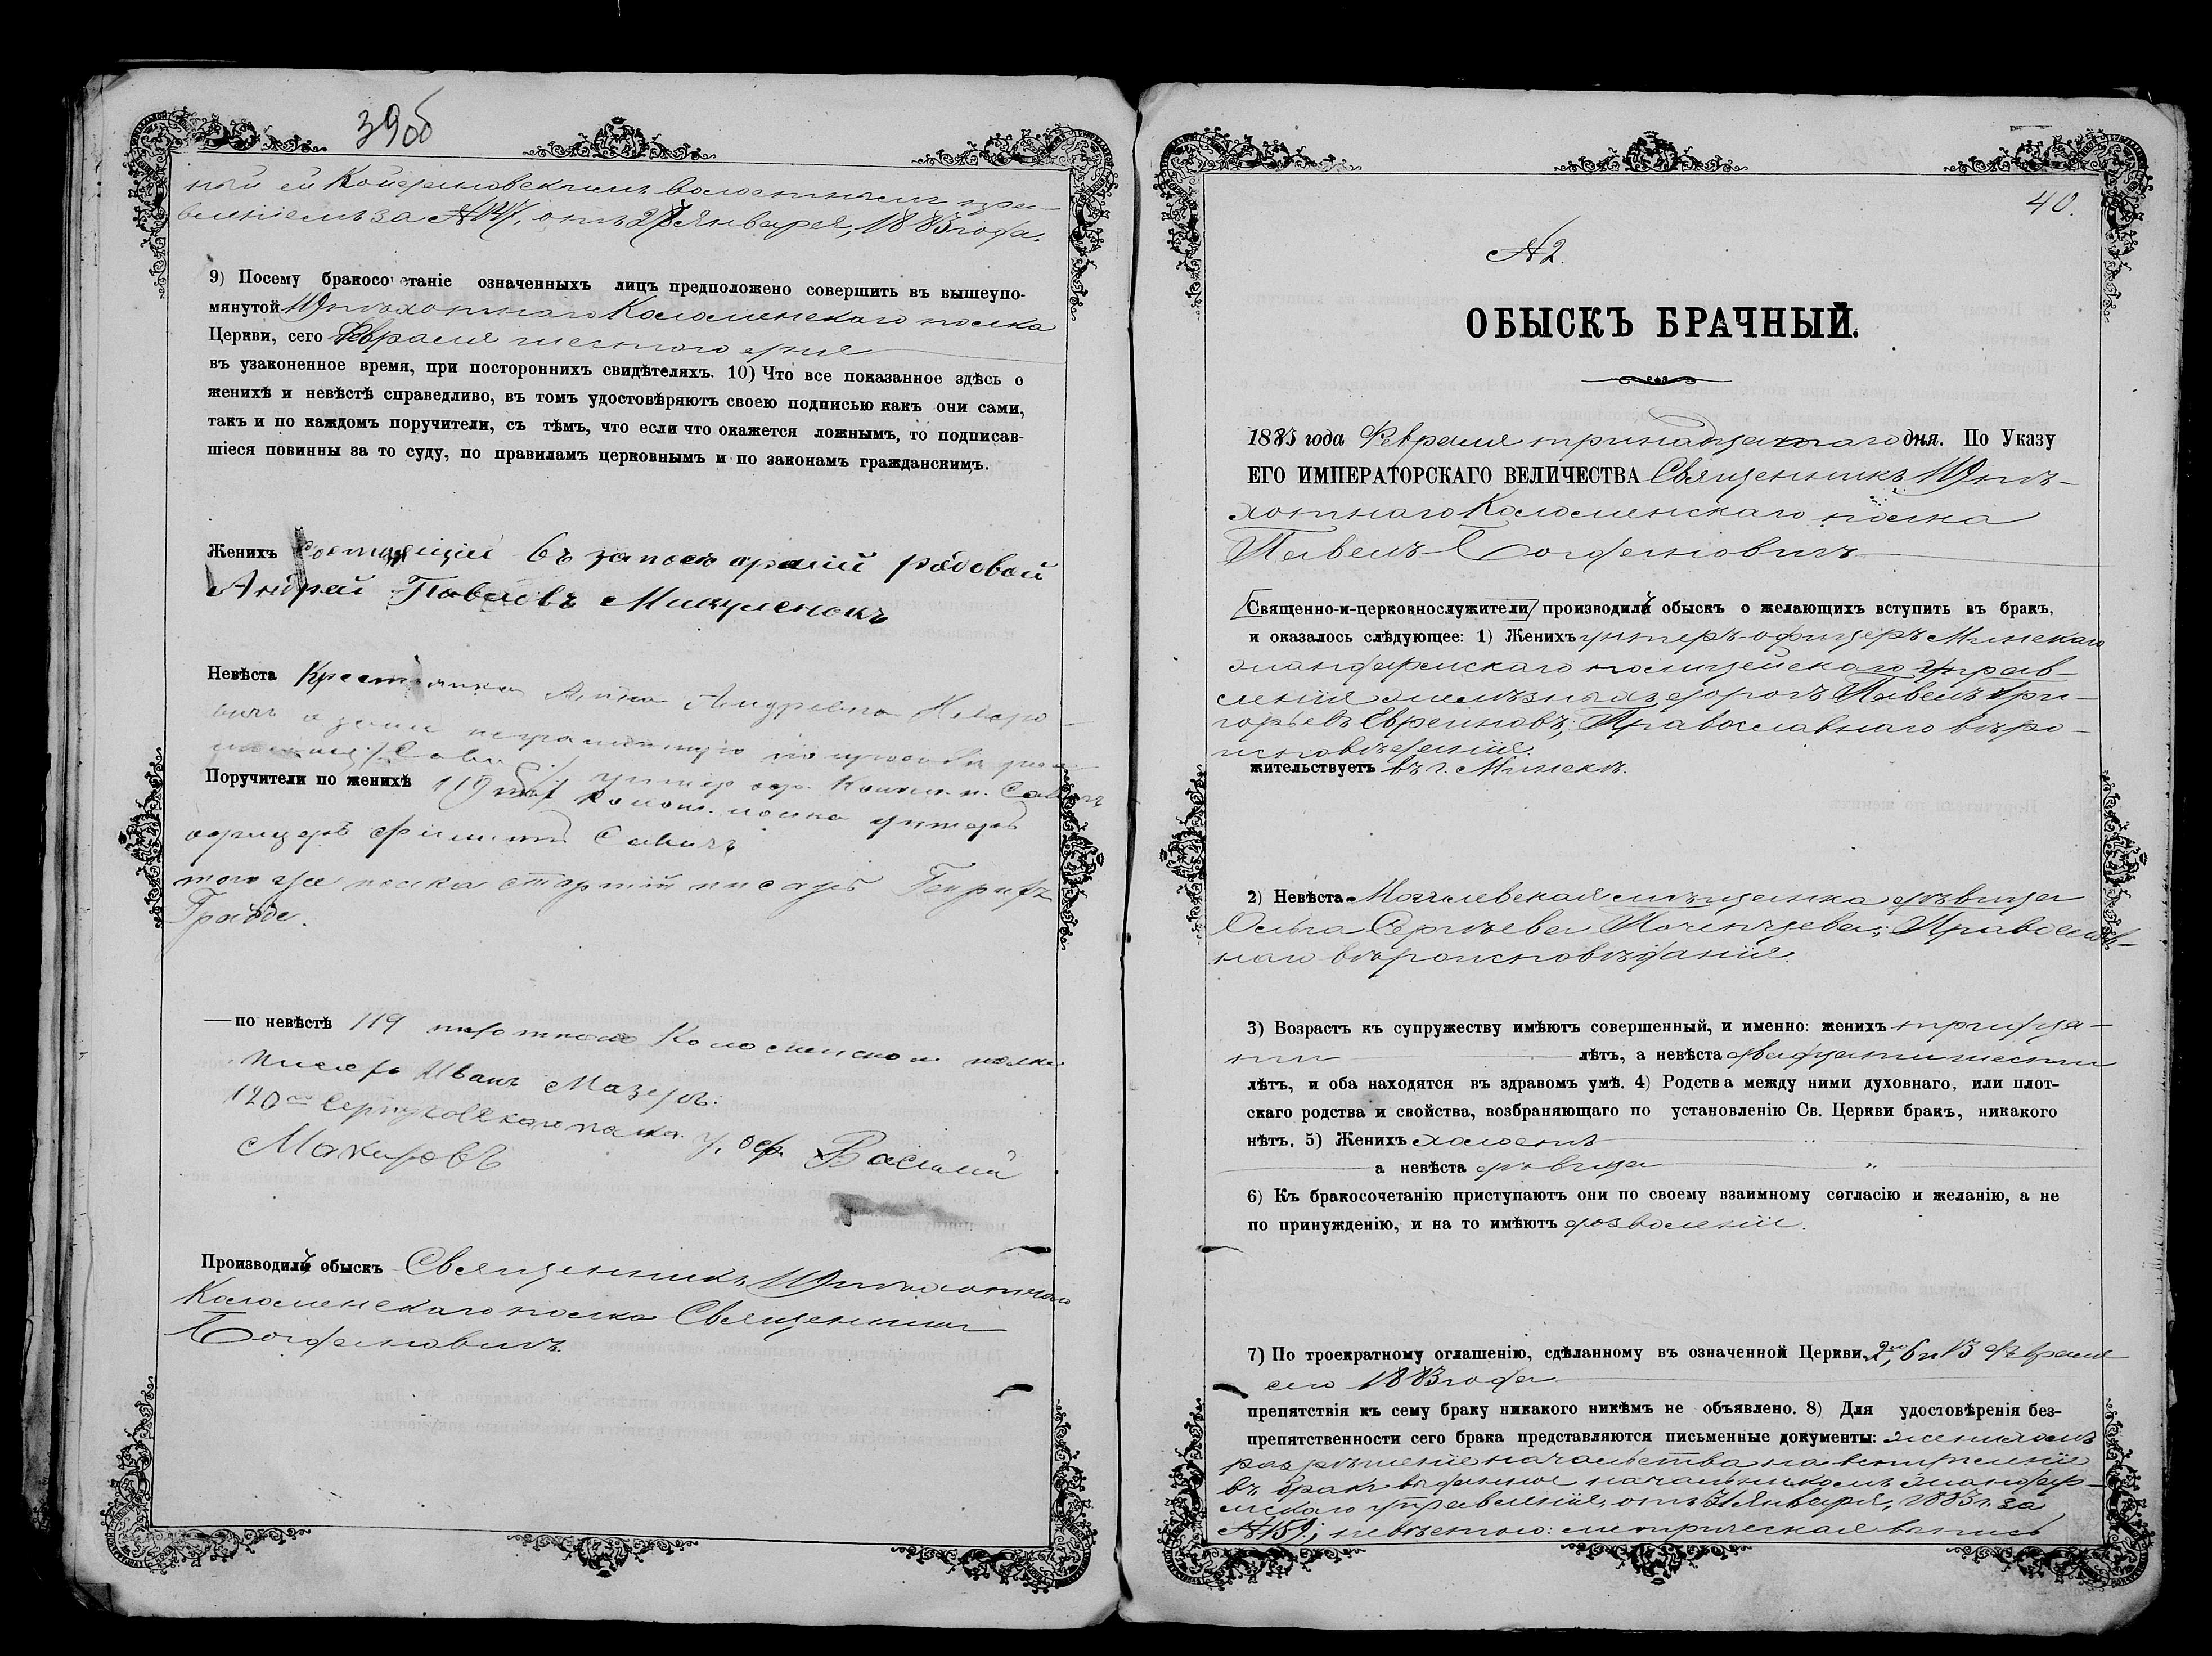 39об
ный ей Койдановскимъ Волостнымъ прав-
вленіемъ за №147, отъ 27 Января, 1883 года.
9) Посему бракосочетаніе означенныхъ лицъ предположено совершить въ вышеупо-
мянутой Пѣхотнаго Коломенскаго полка
Церкви, сего Февраля шестого дня
въ узаконенное время, при постороннихъ свидѣтеляхъ. 10) Что все показанное здѣсь о
женихѣ и невѣстѣ справедливо, въ томъ удостовѣряютъ своею подписью какъ они сами,
такъ и по каждомъ поручители, съ тѣмъ, что если что окажется ложнымъ, то подписав-
шіеся повинны за то суду, по правиламъ церковнымъ и по законамъ гражданскимъ.
Женихъ состящій въ запасѣ арміи рядовой
Андрей Павловъ Микуленокъ
Невѣста Крестьянка Анна Андреевна
а за нея неграмотную по просьбѣ
унтер оф. Колом. п. Савичъ
Поручители по женихѣ 119 пѣх. Колом. полка унтеръ
офицеръ Филиппъ Савичъ
того же полка старшій писарь Генрихъ
Граббе.
— по невѣстѣ 119 пѣхотнаго Коломенскаго полка
писарь Иванъ Мазуръ.
120го Серпуховскаго полка у. оф. Василій
Макаровъ
Производилъ обыскъ Священникъ Пѣхотнаго
Коломенскаго полка Священникъ
Богдановичъ.
40.
№ 2.
ОБЫСКЪ БРАЧНЫЙ.
1883 года Февраля тринадцатаго дня. По Указу
ЕГО ИМПЕРАТОРСКАГО ВЕЛИЧЕСТВА Священникъ Пѣ-
хотнаго Коломенскаго полка
Павелъ Богдановичъ
Священно-и-церковнослужители производилъ обыскъ о желающихъ вступить въ бракъ,
и оказалось слѣдующее: 1) Женихъ унтеръ-офицеръ Минскаго
жандармскаго полицейскаго Управ-
ленія желѣзныхъ дорогъ Павелъ Гри-
горьевъ Евреиновъ, Православнаго вѣро-
исповѣданія.
жительствуетъ въ г. Минскѣ.
2) Невѣста Могилевская мѣщанка дѣвица
Ольга Сергѣева Православ-
наго вѣроисповѣданія.
3) Возрастъ къ супружеству имѣютъ совершенный, и именно: женихъ тридца-
ти лѣтъ, а невѣста двадцати шести
лѣтъ, и оба находятся въ здравомъ умѣ. 4) Родства между ними духовнаго, или плот-
скаго родства и свойства, возбраняющаго по установленію Св. Церкви бракъ, никакого
нѣтъ. 5) Женихъ холостъ
а невѣста дѣвица
6) Къ бракосочетанію приступаютъ они по своему взаимному согласію и желанію, а не
по принужденію, и на то имѣютъ дозволеніе.
7) По троекратному оглашенію, сдѣланному въ означенной Церкви 2го, 6 и 13 Февраля
сего 1883 года
препятствія къ сему браку никакого никѣмъ не объявлено. 8) Для удостовѣренія без-
препятственности сего брака представляются письменные документы: женихомъ
разрѣшеніе начальства на вступленіе
въ бракъ выданное начальникомъ жандар-
мскаго управленія, отъ 31 Января, 1883 г. за
№ 152; невѣстою: метрическая выпись